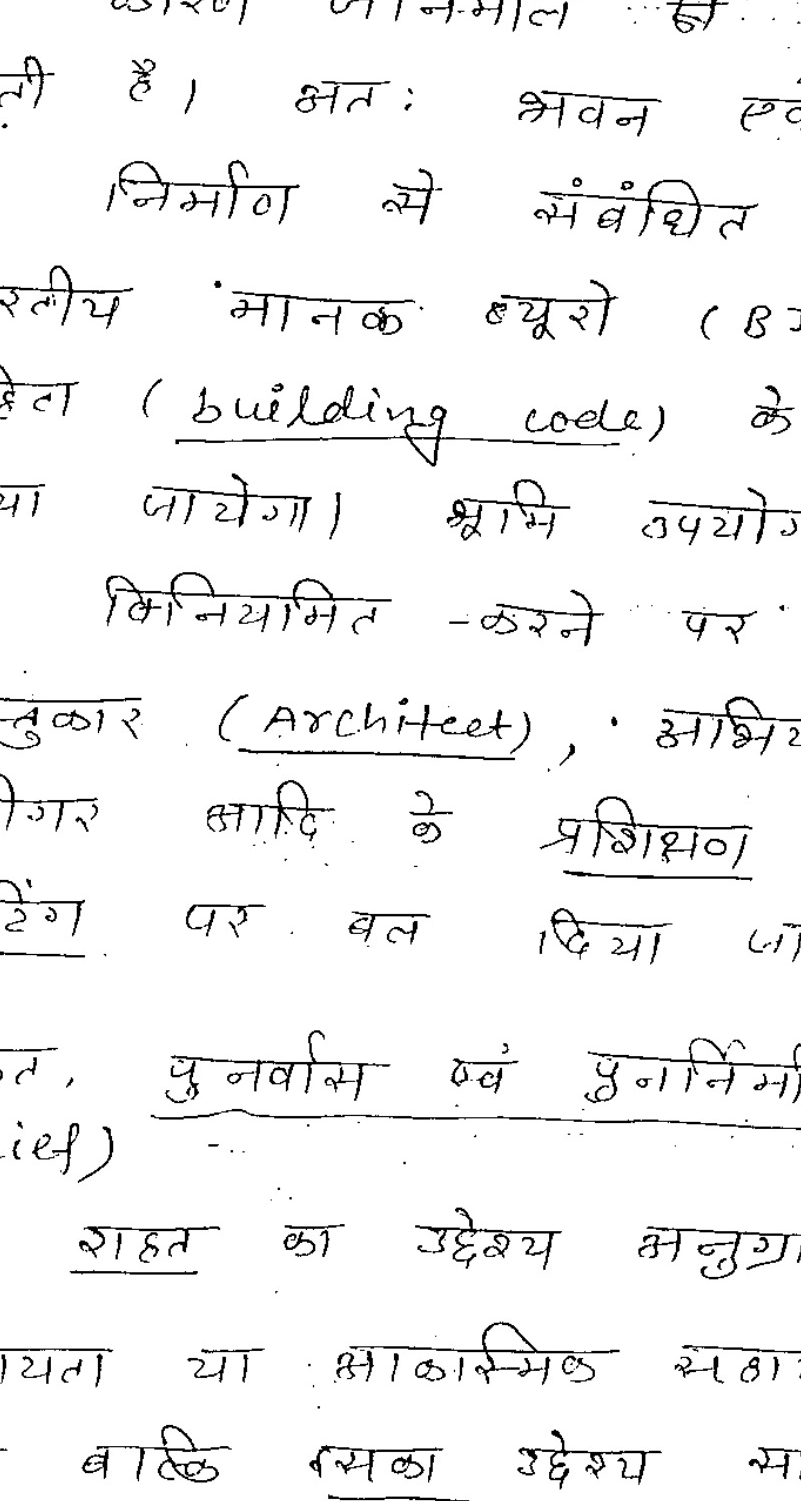 कारण जानमाल
ती है। अतः भवन एवं
निर्माण से संबंधित
रतीय मानक ब्यूरो (B
हिता (building code) के
या जायेगा। भूमि उपयोग
विनियमित करने पर
स्तुकार (Architect), अभिय
ीगर आदि के प्रशिक्षण
टिंग पर बल दिया जा
त, पुनर्वास एवं पुनर्निर्मा
ief)
राहत का उद्देश्य अनुग्र
ायता या आकस्मिक सहा
बल्कि इसका उद्देश्य स